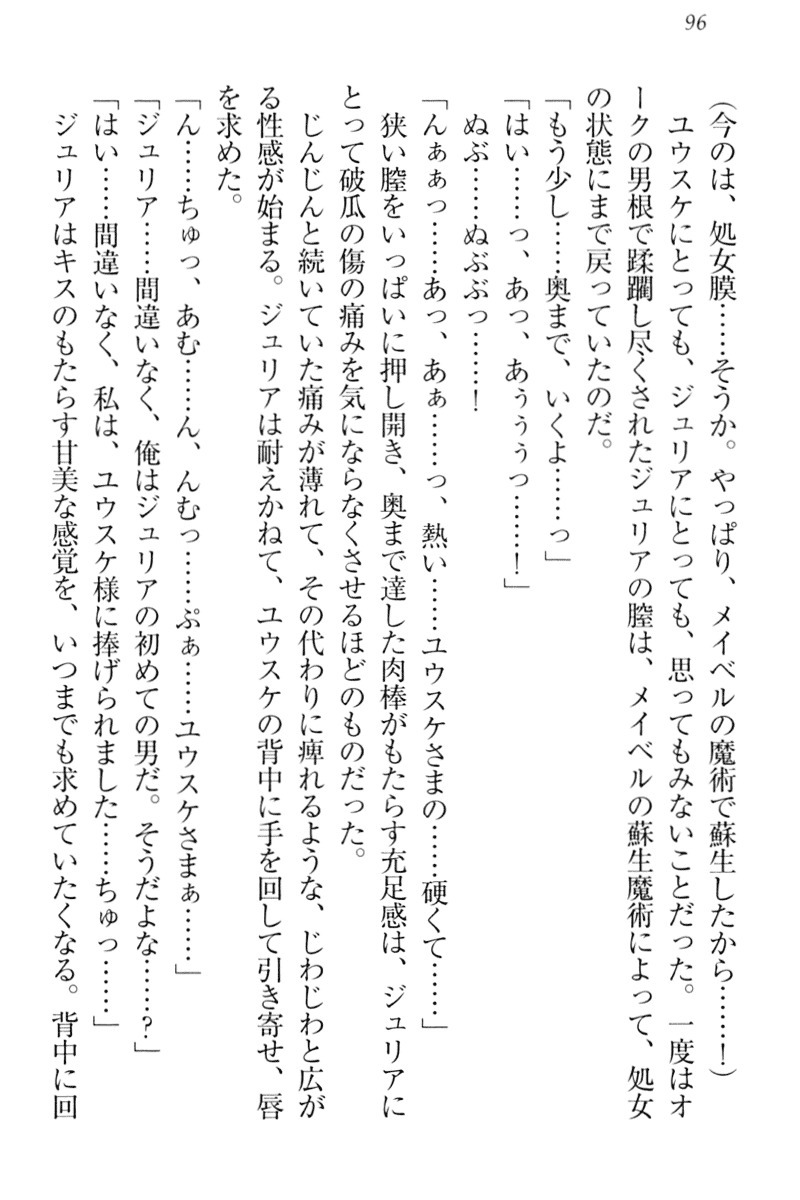 96
（今のは、処女膜……そうか。やっぱり、メイベルの魔術で蘇生したから……！）
　ユウスケにとっても、ジュリアにとっても、思ってもみないことだった。一度はオ
ークの男根で蹂躙し尽くされたジュリアの膣は、メイベルの蘇生魔術によって、処女
の状態にまで戻っていたのだ。
「もう少し……奥まで、いくよ……っ」
「はい……っ、あっ、あぅぅぅっ……！」
　ぬぶ……ぬぶぶっ……！
「んぁぁっ……あっ、あぁ……っ、熱い……ユウスケさまの……硬くて……」
　狭い膣をいっぱいに押し開き、奥まで達した肉棒がもたらす充足感は、ジュリアに
とって破瓜の傷の痛みを気にならなくさせるほどのものだった。
　じんじんと続いていた痛みが薄れて、その代わりに痺れるような、じわじわと広が
る性感が始まる。ジュリアは耐えかねて、ユウスケの背中に手を回して引き寄せ、唇
を求めた。
「ん……ちゅっ、あむ……ん、んむっ……ぷぁ……ユウスケさまぁ……」
「ジュリア……間違いなく、俺はジュリアの初めての男だ。そうだよな……？」
「はい……間違いなく、私は、ユウスケ様に捧げられました……ちゅっ……」
　ジュリアはキスのもたらす甘美な感覚を、いつまでも求めていたくなる。背中に回